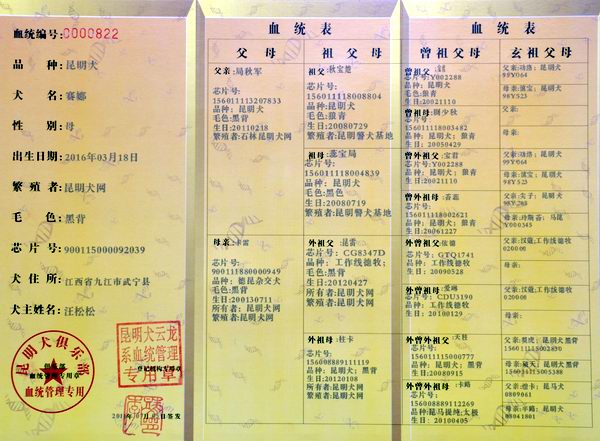 血统编号:0000822
品 种:昆明犬
犬 名:赛娜
性 别:母
出生日期:2016年03月18日
繁 殖 者:昆明犬网
毛 色:黑背
芯 片 号:900115000092039
犬 住 所:江西省九江市武宁县
犬主姓名:汪松松
昆明犬俱乐部
血统管理专用章
血统管理专用
昆明犬云龙
系血统管理
专用章
登记机构专用章
血统表
父 母
祖父母
父亲:局秋军
芯片号:
156011113207833
品种:昆明犬
毛色:黑背
生日:20110218
繁殖者:石林昆明犬网
母亲:卡雷
芯片号:
900111880000949
品种:德昆杂交犬
毛色:黑背
生日:200130711
所有者:昆明犬网
繁殖者:昆明犬网
祖父:秋宝楚
芯片号:
156011118008804
品种:昆明犬
毛色:狼青
生日:20080729
繁殖者:昆明警犬基地
祖母:蕊宝局
芯片号:
156011118004839
品种:昆明犬
毛色:黑背
生日:20080719
繁殖者:昆明警犬基地
外祖父:昆雷
芯片号:CG8347D
品种:工作线德牧;
毛色:黑背
生日:20120427
所有者:昆明犬网
繁殖者:昆明犬网
外祖母:杜卡
芯片号:
156008889111119
品种:昆明犬
毛色:黑背
生日:20120108
所有者:昆明犬网
繁殖者:昆明犬网
血统表
曾祖父母
玄祖父母
曾祖父:
芯片号:Y002288
品种:昆明犬
毛色:狼青
生日:20021110
曾祖母:
芯片号:
156011118003482
品种:昆明犬;狼青
生日:20050429
曾外祖父:宝君
芯片号:Y002288
品种:昆明犬;狼青
生日:20021110
曾外祖母:
芯片号:
156011118002621
品种:昆明犬;狼青
生日:20061227
外曾祖父:依德
芯片号:GTQ1741
品种:工作线德牧
生日:20090528
外曾祖母:
芯片号:CDU3199
品种:工作线德牧;黑背
生日:20100129
外曾外祖父:天柱
芯片号:
156011115000777
品种:昆明犬;黑背
生日:20080915
外曾外祖母:卡璐
芯片号:
156008889112269
品种:昆马提纯;太极
生日:20100405
父亲:功洛;昆明犬
99Y064
母亲:滇宝;昆明犬
98Y523
父亲:
母亲:
父亲:功洛;昆明犬
99Y064
母亲:滇宝;昆明犬
98Y523
父亲:尖子;昆明犬
母亲:玲斯蓓;马昆
父亲:汉蔻;工作线德牧
母亲:
父亲:汉蔻;工作线德牧
母亲:
父亲:莫虎;昆明犬黑背
母亲:昊天;昆明犬黑背
父亲:德卡;昆马犬
0809061
母亲:芈路;昆明犬
08041801